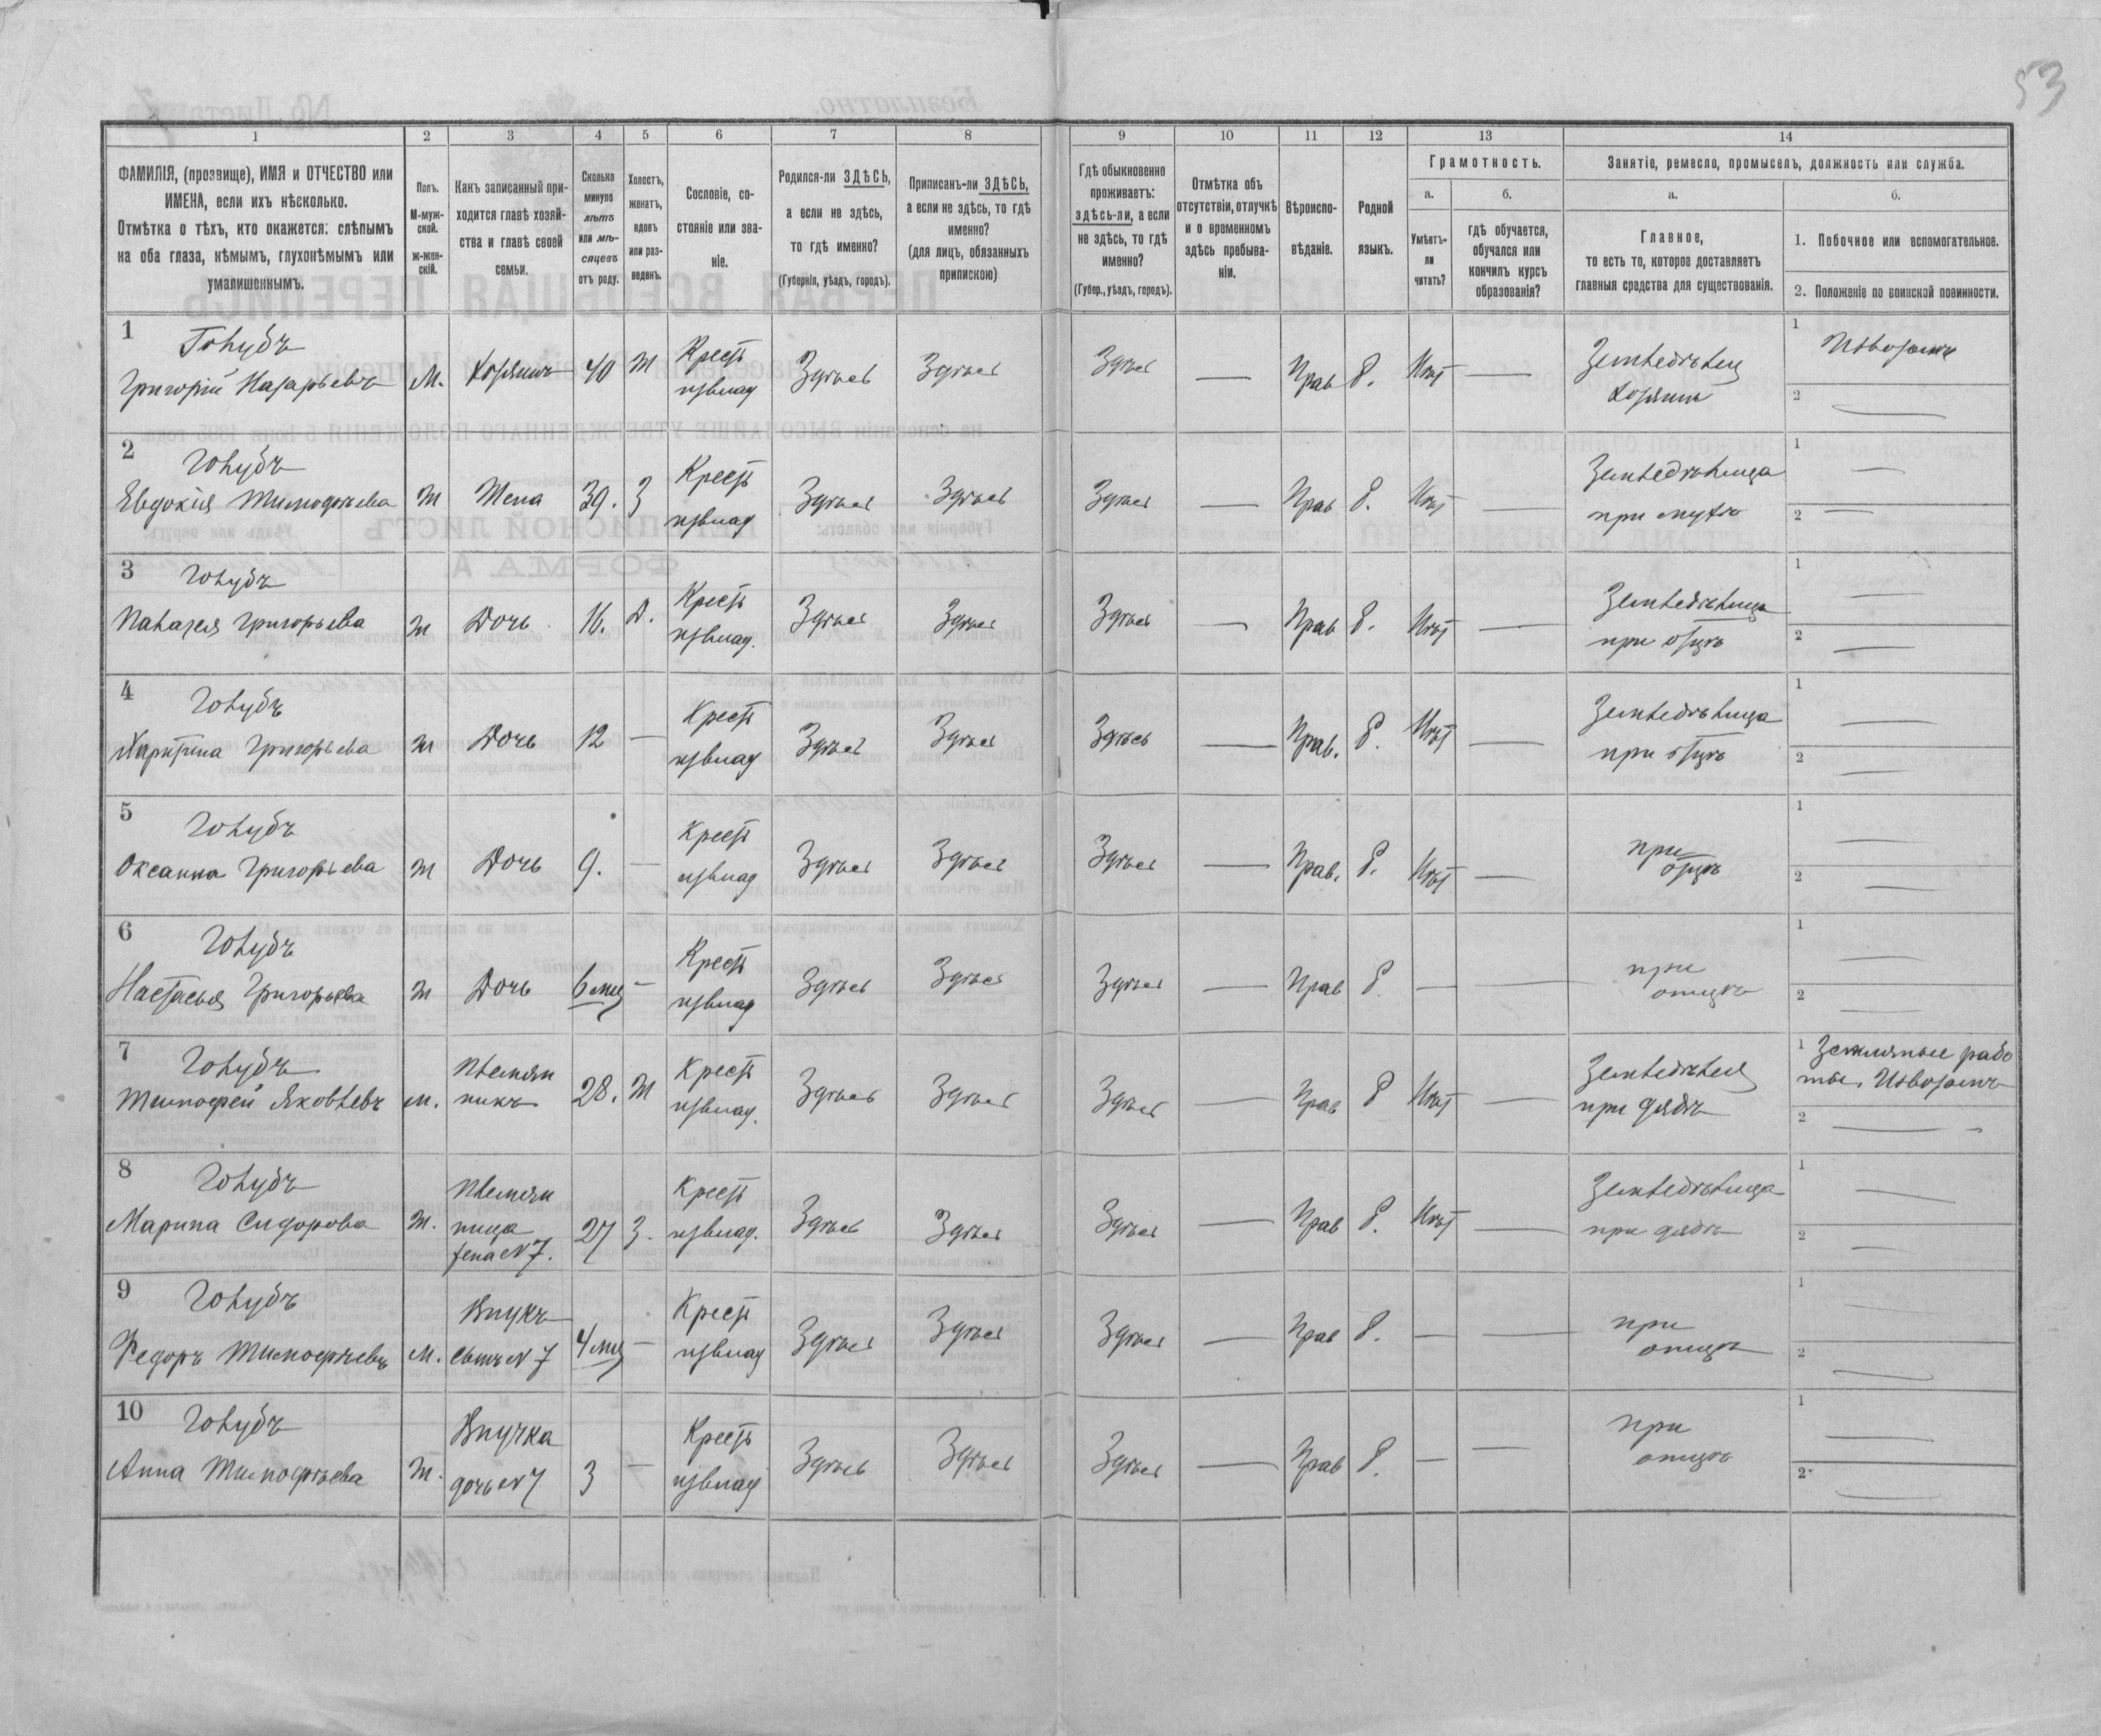 53
1 2 3 4 5 6 7 8 9 10 11 12 13 14
ФАМИЛІЯ, (прозвище), ИМЯ и ОТЧЕСТВО или
ИМЕНА, если ихъ нѣсколько.
Отмѣтка о тѣхъ, кто окажется: слѣпымъ
на оба глаза, нѣмымъ, глухонѣмымъ или
умалишеннымъ.
Полъ.
М-муж-
ской.
ж-жен-
скій.
Какъ записанный при-
ходится главѣ хозяй-
ства и главѣ своей
семьи.
Сколько
минуло
лѣтъ
или мѣ-
сяцевъ
отъ роду.
Холостъ,
женатъ,
вдовъ
или раз-
веденъ.
Сословіе, со-
стояніе или зва-
ніе.
Родился-ли ЗДѢСЬ,
а если не здѣсь,
то гдѣ именно?
(Губернія, уѣздъ, городъ).
Приписанъ-ли ЗДѢСЬ,
а если не здѣсь, то гдѣ
именно?
(для лицъ, обязанныхъ
припискою)
Гдѣ обыкновенно
проживаетъ:
здѣсь-ли, а если
не здѣсь, то гдѣ
именно?
(Губер., уѣздъ, городъ).
Отмѣтка объ
отсутствіи, отлучкѣ
и о временномъ
здѣсь пребыва-
ніи.
Вѣроиспо-
вѣданіе.
Родной
языкъ.
Грамотность.
а.
Умѣетъ-
ли
читать?
б.
гдѣ обучается,
обучался или
кончилъ курсъ
образованія?
Занятіе, ремесло, промыселъ, должность или служба.
а.
Главное,
то есть то, которое доставляетъ
главныя средства для существованія.
б.
1. Побочное или вспомогательное.
2. Положеніе по воинской повинности.
1 Голубъ
Григорій Назарьевъ М. Хозяинъ 40 Ж Крест
Здѣсь Здѣсь Здѣсь — Прав Нѣт —
Земледѣлец
хозяинъ
1 Извозомъ
2 —
2 Голубъ
Евдокія Тимофѣева Ж Жена 39. З Крест
Здѣсь Здѣсь Здѣсь — Прав Нѣт —
Земледѣлица
при мужѣ
1 —
2 —
3 Голубъ
Палажея Григорьева Ж Дочь 16. Д. Крест
Здѣсь Здѣсь Здѣсь — Прав Нѣт —
Земледѣлица
при отцѣ
1 —
2 —
4 Голубъ
Харитина Григорьева Ж Дочь 12 — Крест
Здѣсь Здѣсь Здѣсь — Прав. Нѣт —
Земледѣлица
при отцѣ
1 —
2 —
5 Голубъ
Оксанна Григорьева Ж Дочь 9. — Крест
Здѣсь Здѣсь Здѣсь — Прав. Нѣт —
при
отцѣ
1 —
2 —
6 Голубъ
Настасья Григорьева Ж Дочь 6 мц — Крест
Здѣсь Здѣсь Здѣсь — Прав — —
при
отцѣ
1 —
2 —
7 Голубъ
Тимофей Яковлевъ М. Племян
никъ 28. Ж Крест
Здѣсь Здѣсь Здѣсь — Прав Нѣт —
Земледѣлец
при дядѣ
1 Земляные рабо
ты, Извозомъ
2 —
8 Голубъ
Марина Сидорова Ж. Племян
ница
жена N 7. 27 З. Крест
Здѣсь Здѣсь Здѣсь — Прав Нѣт —
Земледѣлица
при дядѣ
1 —
2 —
9 Голубъ
Федоръ Тимофѣевъ М. Внукъ
сынъ N 7 4 мц — Крест
Здѣсь Здѣсь Здѣсь — Прав — —
при
отцѣ
1 —
2 —
10 Голубъ
Анна Тимофѣева Ж. Внучка
дочь N 7 3 — Крест
Здѣсь Здѣсь Здѣсь — Прав — —
при
отцѣ
1 —
2 —